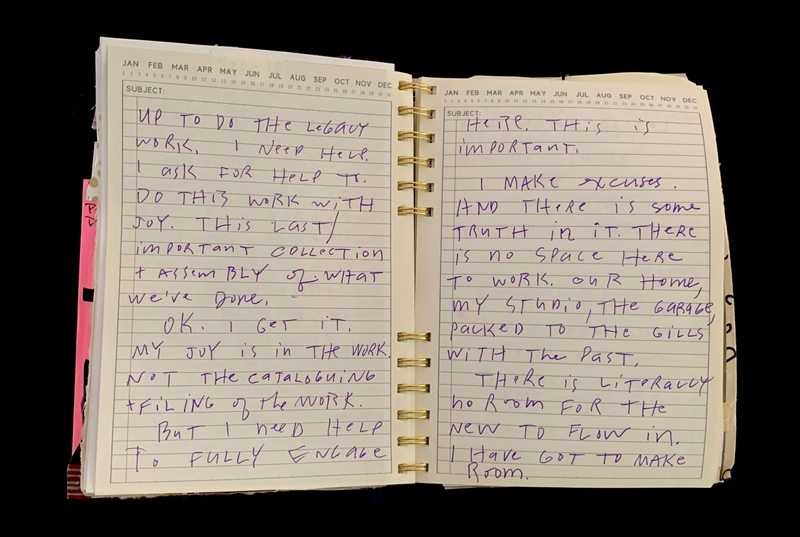 JAN FEB MAR APR MAY JUN JUL AUG SEP OCT NOV DEC
1 2 3 4 5 6 7 8 9 10 11 12 13 14 15 16 17 18 19 20 21 22 23 24 25 26 27 28 29 30 31
SUBJECT:
UP TO DO THE LEGACY
WORK. I NEED HELP.
I ASK FOR HELP TO.
DO THIS WORK WITH
JOY. THIS LAST/
IMPORTANT COLLECTION
+ ASSEMBLY OF WHAT
WE'VE DONE.
OK. I GET IT.
MY JOY IS IN THE WORK.
NOT THE CATALOGUING
+ FILING OF THE WORK.
BUT I NEED HELP
TO FULLY ENGAGE
JAN FEB MAR APR MAY JUN JUL AUG SEP OCT NOV DEC
1 2 3 4 5 6 7 8 9 10 11 12 13 14 15 16 17 18 19 20 21 22 23 24 25 26 27 28 29 30 31
SUBJECT:
HERE. THIS IS
IMPORTANT.
I MAKE EXCUSES.
AND THERE IS SOME
TRUTH IN IT. THERE
IS NO SPACE HERE
TO WORK. OUR HOME,
MY STUDIO, THE GARAGE,
PACKED TO THE GILLS
WITH THE PAST.
THERE IS LITERALLY
NO ROOM FOR THE
NEW TO FLOW IN.
I HAVE GOT TO MAKE
ROOM.